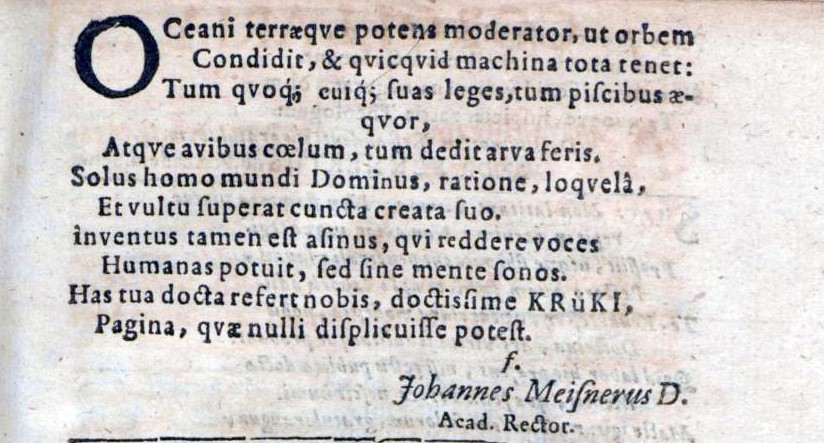 OCeani terræqve potens moderator, ut orbem
Condidit, & qvicqvid machina tota tenet:
Tum qvoq́; cuiq́; ſuas leges, tum piſcibus æ-
qvor,
Atqve avibus cœlum, tum dedit arva feris.
Solus homo mundi Dominus, ratione, loqvelâ,
Et vultu ſuperat cuncta creata ſuo.
inventus tamen eſt aſinus, qvi reddere voces
Humanas potuit, ſed ſine mente ſonos.
Has tua docta refert nobis, doctisſime KRüKI,
Pagina, qvæ nulli diſplicuiſſe poteſt.
ſ.
Johannes Meiſnerus D.
Acad. Rector.